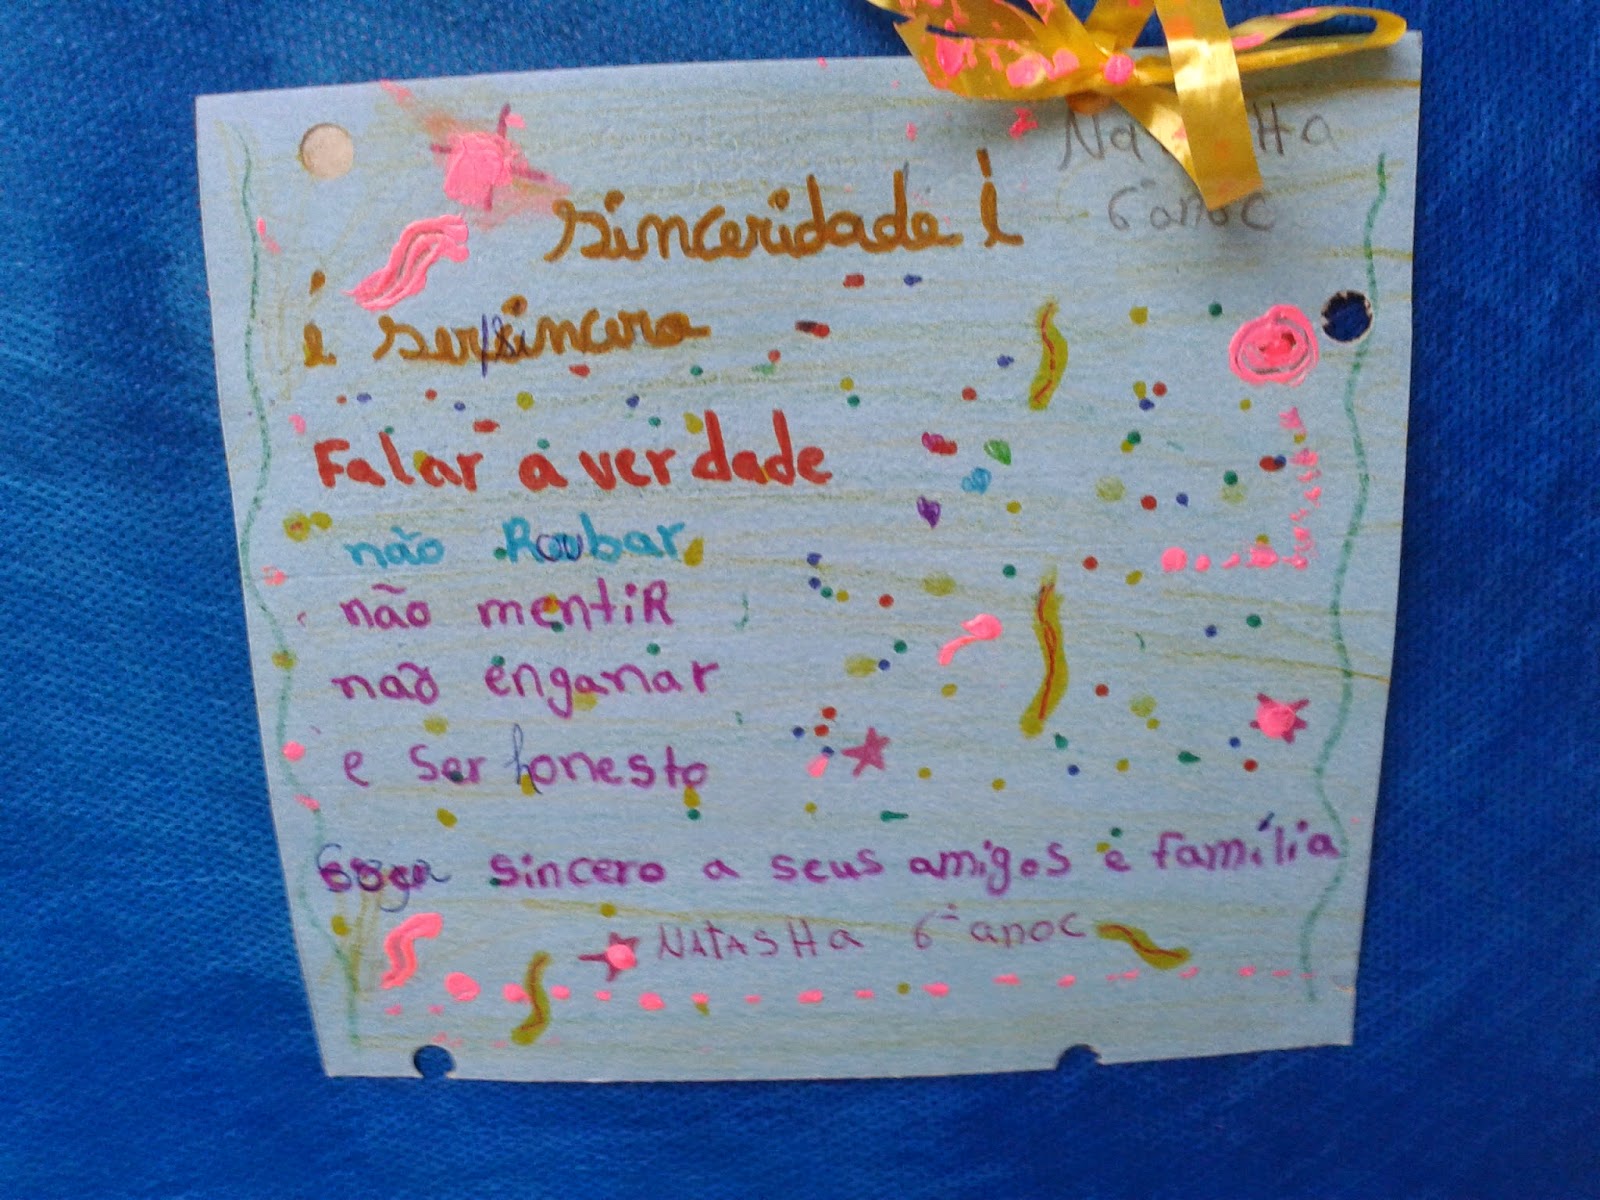 Na Ha
6º ano C
sinceridade!
é ser sincero
Falar a verdade
não Roubar
não mentiR
não enganar
e ser honesto
sincero a seus amigos e família
NATASHa 6º ano C